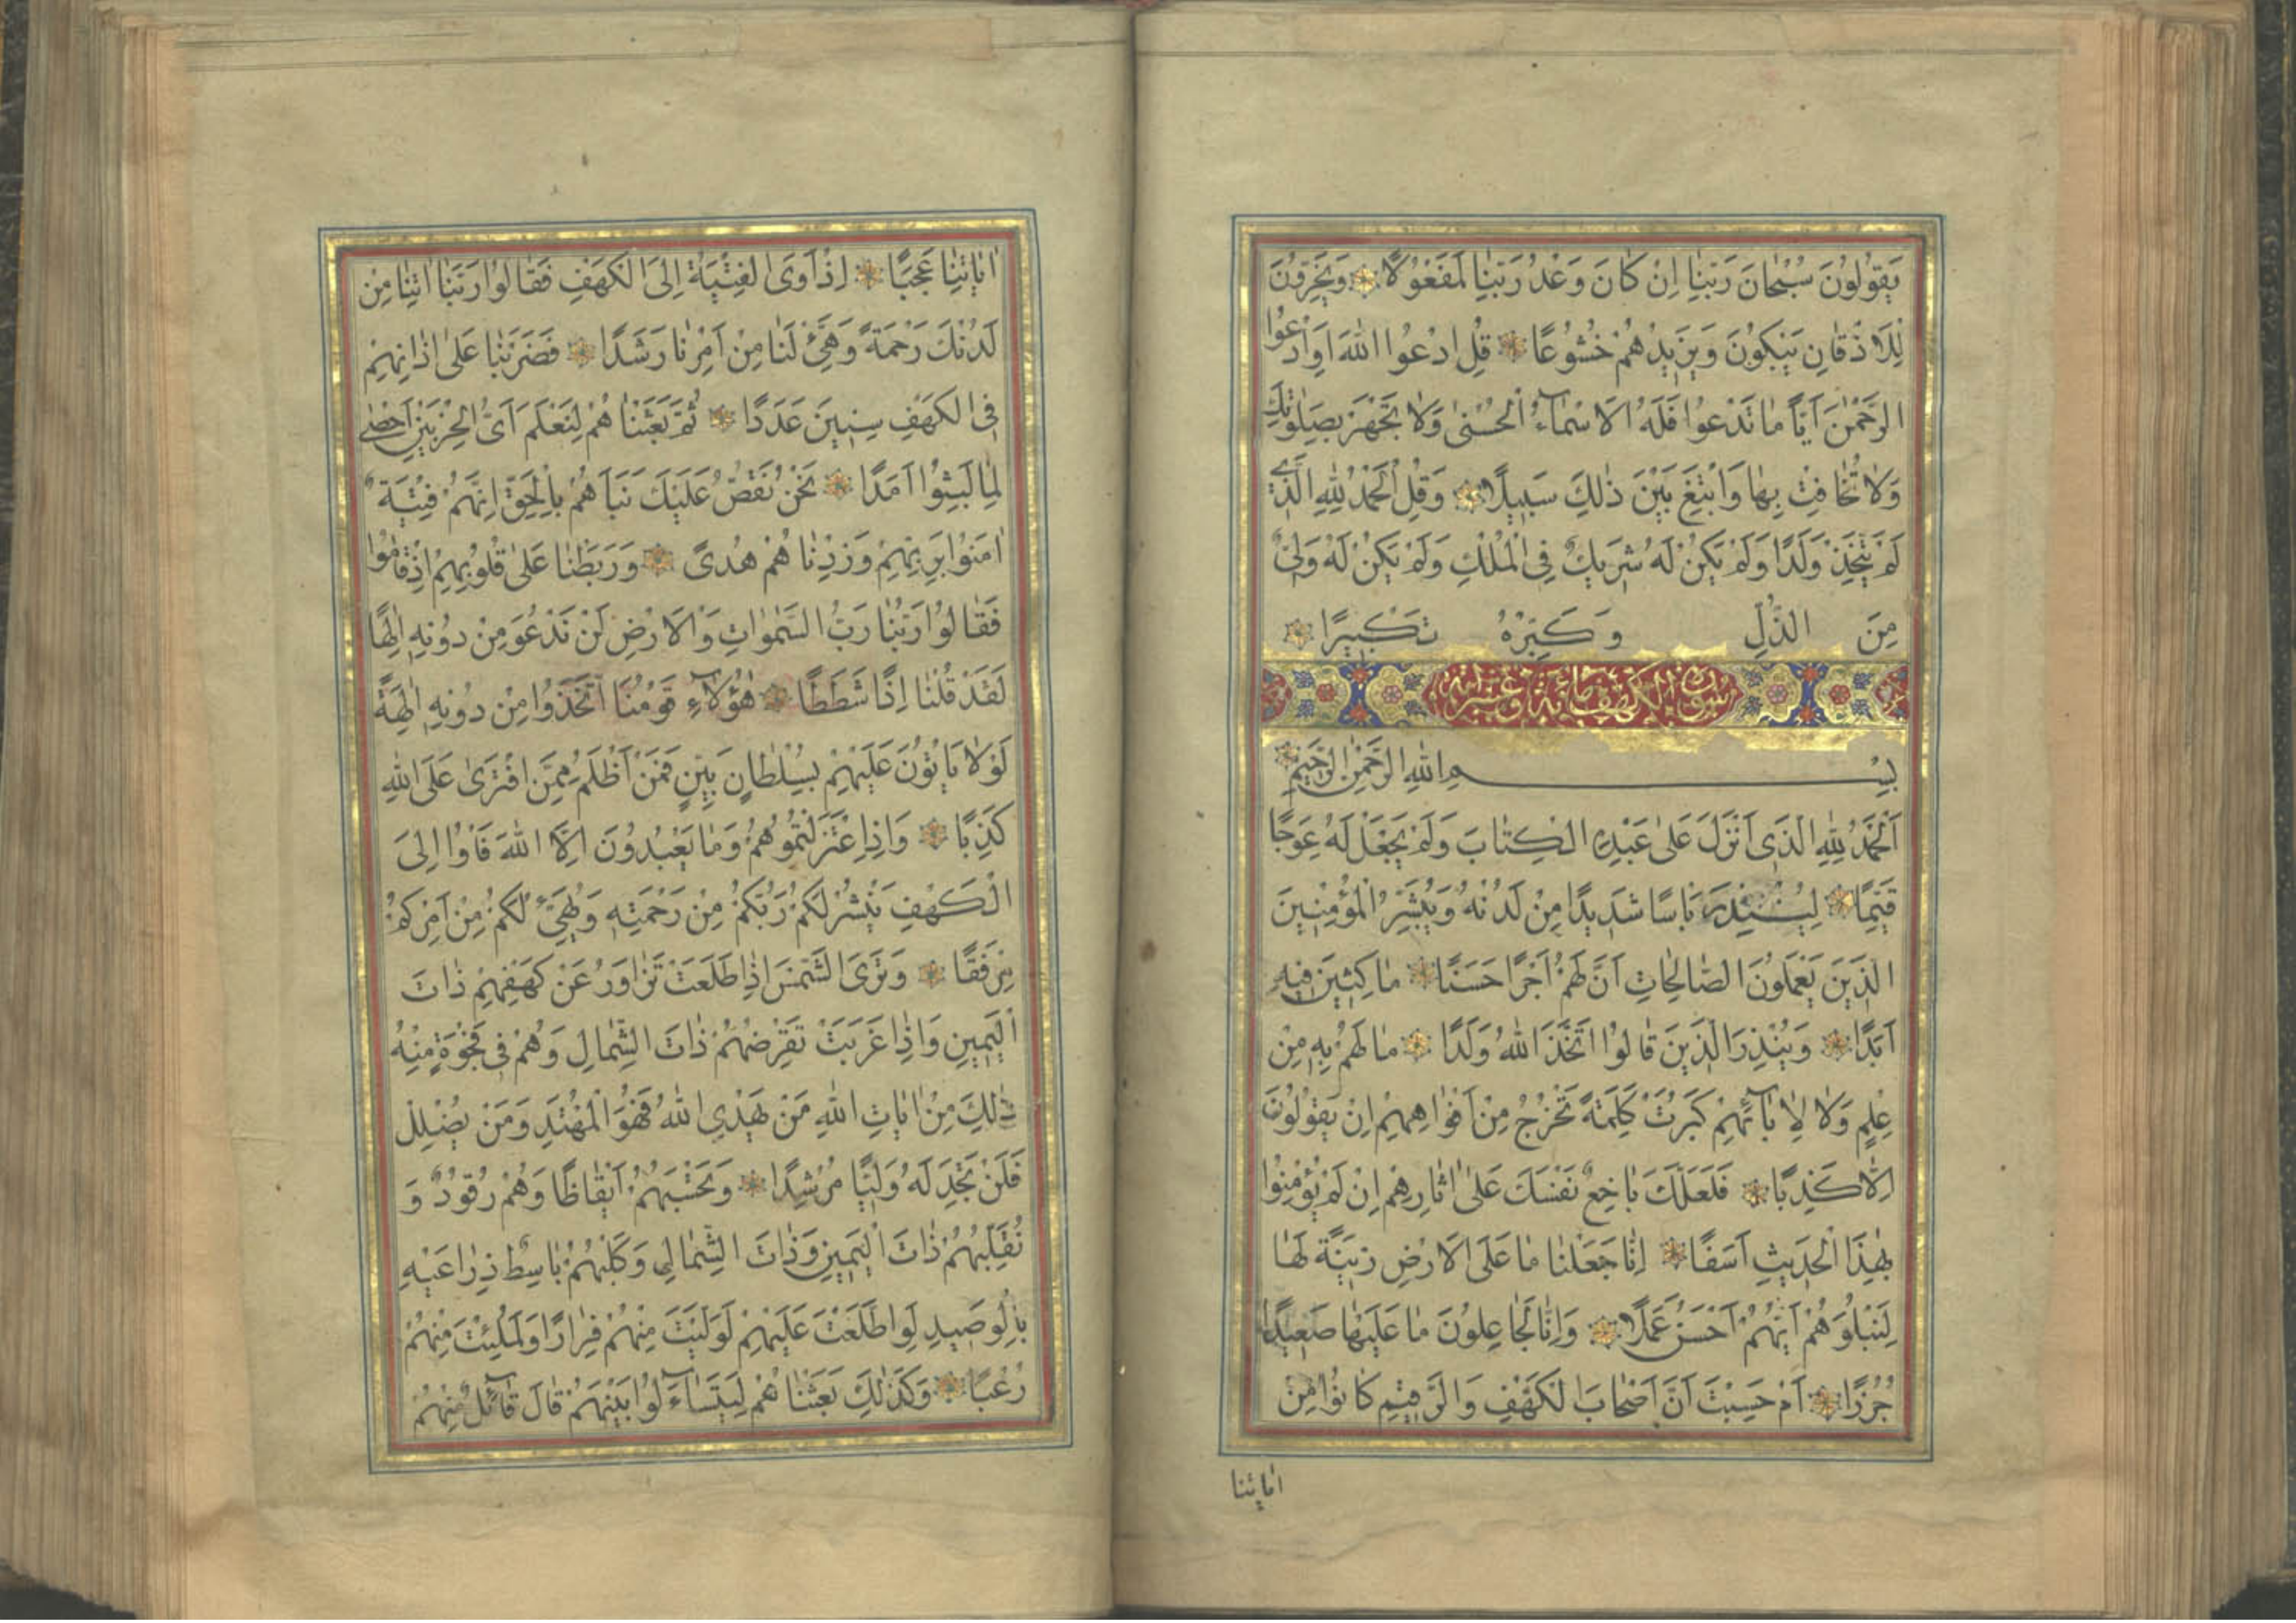 يَقُولُونَ سُبْحَانَ رَبِّنَا اِنْ كَانَ وَعْدُ رَبِّنَا لَمَفْعُولًا وَيَخِرُّونَ
لِلْاَذْقَانِ يَبْكُونَ وَيَزِيدُهُمْ خُشُوعًا قُلِ ادْعُوا اللّٰهَ اَوِ ادْعُوا
الرَّحْمٰنَ اَيًّا مَا تَدْعُوا فَلَهُ الْاَسْمَآءُ الْحُسْنٰى وَلَا تَجْهَرْ بِصَلٰوتِكَ
وَلَا تُخَافِتْ بِهَا وَابْتَغِ بَيْنَ ذٰلِكَ سَبِيلًا وَقُلِ الْحَمْدُ لِلّٰهِ الَّذِي
لَمْ يَتَّخِذْ وَلَدًا وَلَمْ يَكُنْ لَهُ شَرِيكٌ فِي الْمُلْكِ وَلَمْ يَكُنْ لَهُ وَلِيٌّ
مِنَ الذُّلِّ وَكَبِّرْهُ تَكْبِيرًا
سورة الكهف مائة وعشر
بِسْمِ اللّٰهِ الرَّحْمٰنِ الرَّحِيمِ
اَلْحَمْدُ لِلّٰهِ الَّذِي اَنْزَلَ عَلٰى عَبْدِهِ الْكِتَابَ وَلَمْ يَجْعَلْ لَهُ عِوَجًا
قَيِّمًا لِيُنْذِرَ بَاْسًا شَدِيدًا مِنْ لَدُنْهُ وَيُبَشِّرَ الْمُؤْمِنِينَ
الَّذِينَ يَعْمَلُونَ الصَّالِحَاتِ اَنَّ لَهُمْ اَجْرًا حَسَنًا مَاكِثِينَ فِيهِ
اَبَدًا وَيُنْذِرَ الَّذِينَ قَالُوا اتَّخَذَ اللّٰهُ وَلَدًا مَا لَهُمْ بِهِ مِنْ
عِلْمٍ وَلَا لِاٰبَآئِهِمْ كَبُرَتْ كَلِمَةً تَخْرُجُ مِنْ اَفْوَاهِهِمْ اِنْ يَقُولُونَ
اِلَّا كَذِبًا فَلَعَلَّكَ بَاخِعٌ نَفْسَكَ عَلٰى اٰثَارِهِمْ اِنْ لَمْ يُؤْمِنُوا
بِهٰذَا الْحَدِيثِ اَسَفًا اِنَّا جَعَلْنَا مَا عَلَى الْاَرْضِ زِينَةً لَهَا
لِنَبْلُوَهُمْ اَيُّهُمْ اَحْسَنُ عَمَلًا وَاِنَّا لَجَاعِلُونَ مَا عَلَيْهَا صَعِيدًا
جُرُزًا اَمْ حَسِبْتَ اَنَّ اَصْحَابَ الْكَهْفِ وَالرَّقِيمِ كَانُوا مِنْ
اٰيَاتِنَا
اٰيَاتِنَا عَجَبًا اِذْ اَوَى الْفِتْيَةُ اِلَى الْكَهْفِ فَقَالُوا رَبَّنَا اٰتِنَا مِنْ
لَدُنْكَ رَحْمَةً وَهَيِّئْ لَنَا مِنْ اَمْرِنَا رَشَدًا فَضَرَبْنَا عَلٰى اٰذَانِهِمْ
فِي الْكَهْفِ سِنِينَ عَدَدًا ثُمَّ بَعَثْنَاهُمْ لِنَعْلَمَ اَيُّ الْحِزْبَيْنِ اَحْصٰى
لِمَا لَبِثُوا اَمَدًا نَحْنُ نَقُصُّ عَلَيْكَ نَبَاَهُمْ بِالْحَقِّ اِنَّهُمْ فِتْيَةٌ
اٰمَنُوا بِرَبِّهِمْ وَزِدْنَاهُمْ هُدًى وَرَبَطْنَا عَلٰى قُلُوبِهِمْ اِذْ قَامُوا
فَقَالُوا رَبُّنَا رَبُّ السَّمٰوَاتِ وَالْاَرْضِ لَنْ نَدْعُوَ مِنْ دُونِهِ اِلٰهًا
لَقَدْ قُلْنَا اِذًا شَطَطًا هٰؤُلَآءِ قَوْمُنَا اتَّخَذُوا مِنْ دُونِهِ اٰلِهَةً
لَوْلَا يَاْتُونَ عَلَيْهِمْ بِسُلْطَانٍ بَيِّنٍ فَمَنْ اَظْلَمُ مِمَّنِ افْتَرٰى عَلَى اللّٰهِ
كَذِبًا وَاِذِ اعْتَزَلْتُمُوهُمْ وَمَا يَعْبُدُونَ اِلَّا اللّٰهَ فَاْوُا اِلَى
الْكَهْفِ يَنْشُرْ لَكُمْ رَبُّكُمْ مِنْ رَحْمَتِهِ وَيُهَيِّئْ لَكُمْ مِنْ اَمْرِكُمْ
مِرْفَقًا وَتَرَى الشَّمْسَ اِذَا طَلَعَتْ تَزَاوَرُ عَنْ كَهْفِهِمْ ذَاتَ
الْيَمِينِ وَاِذَا غَرَبَتْ تَقْرِضُهُمْ ذَاتَ الشِّمَالِ وَهُمْ فِي فَجْوَةٍ مِنْهُ
ذٰلِكَ مِنْ اٰيَاتِ اللّٰهِ مَنْ يَهْدِي اللّٰهُ فَهُوَ الْمُهْتَدِ وَمَنْ يُضْلِلْ
فَلَنْ تَجِدَ لَهُ وَلِيًّا مُرْشِدًا وَتَحْسَبُهُمْ اَيْقَاظًا وَهُمْ رُقُودٌ وَ
نُقَلِّبُهُمْ ذَاتَ الْيَمِينِ وَذَاتَ الشِّمَالِ وَكَلْبُهُمْ بَاسِطٌ ذِرَاعَيْهِ
بِالْوَصِيدِ لَوِ اطَّلَعْتَ عَلَيْهِمْ لَوَلَّيْتَ مِنْهُمْ فِرَارًا وَلَمُلِئْتَ مِنْهُمْ
رُعْبًا وَكَذٰلِكَ بَعَثْنَاهُمْ لِيَتَسَآءَلُوا بَيْنَهُمْ قَالَ قَآئِلٌ مِنْهُمْ